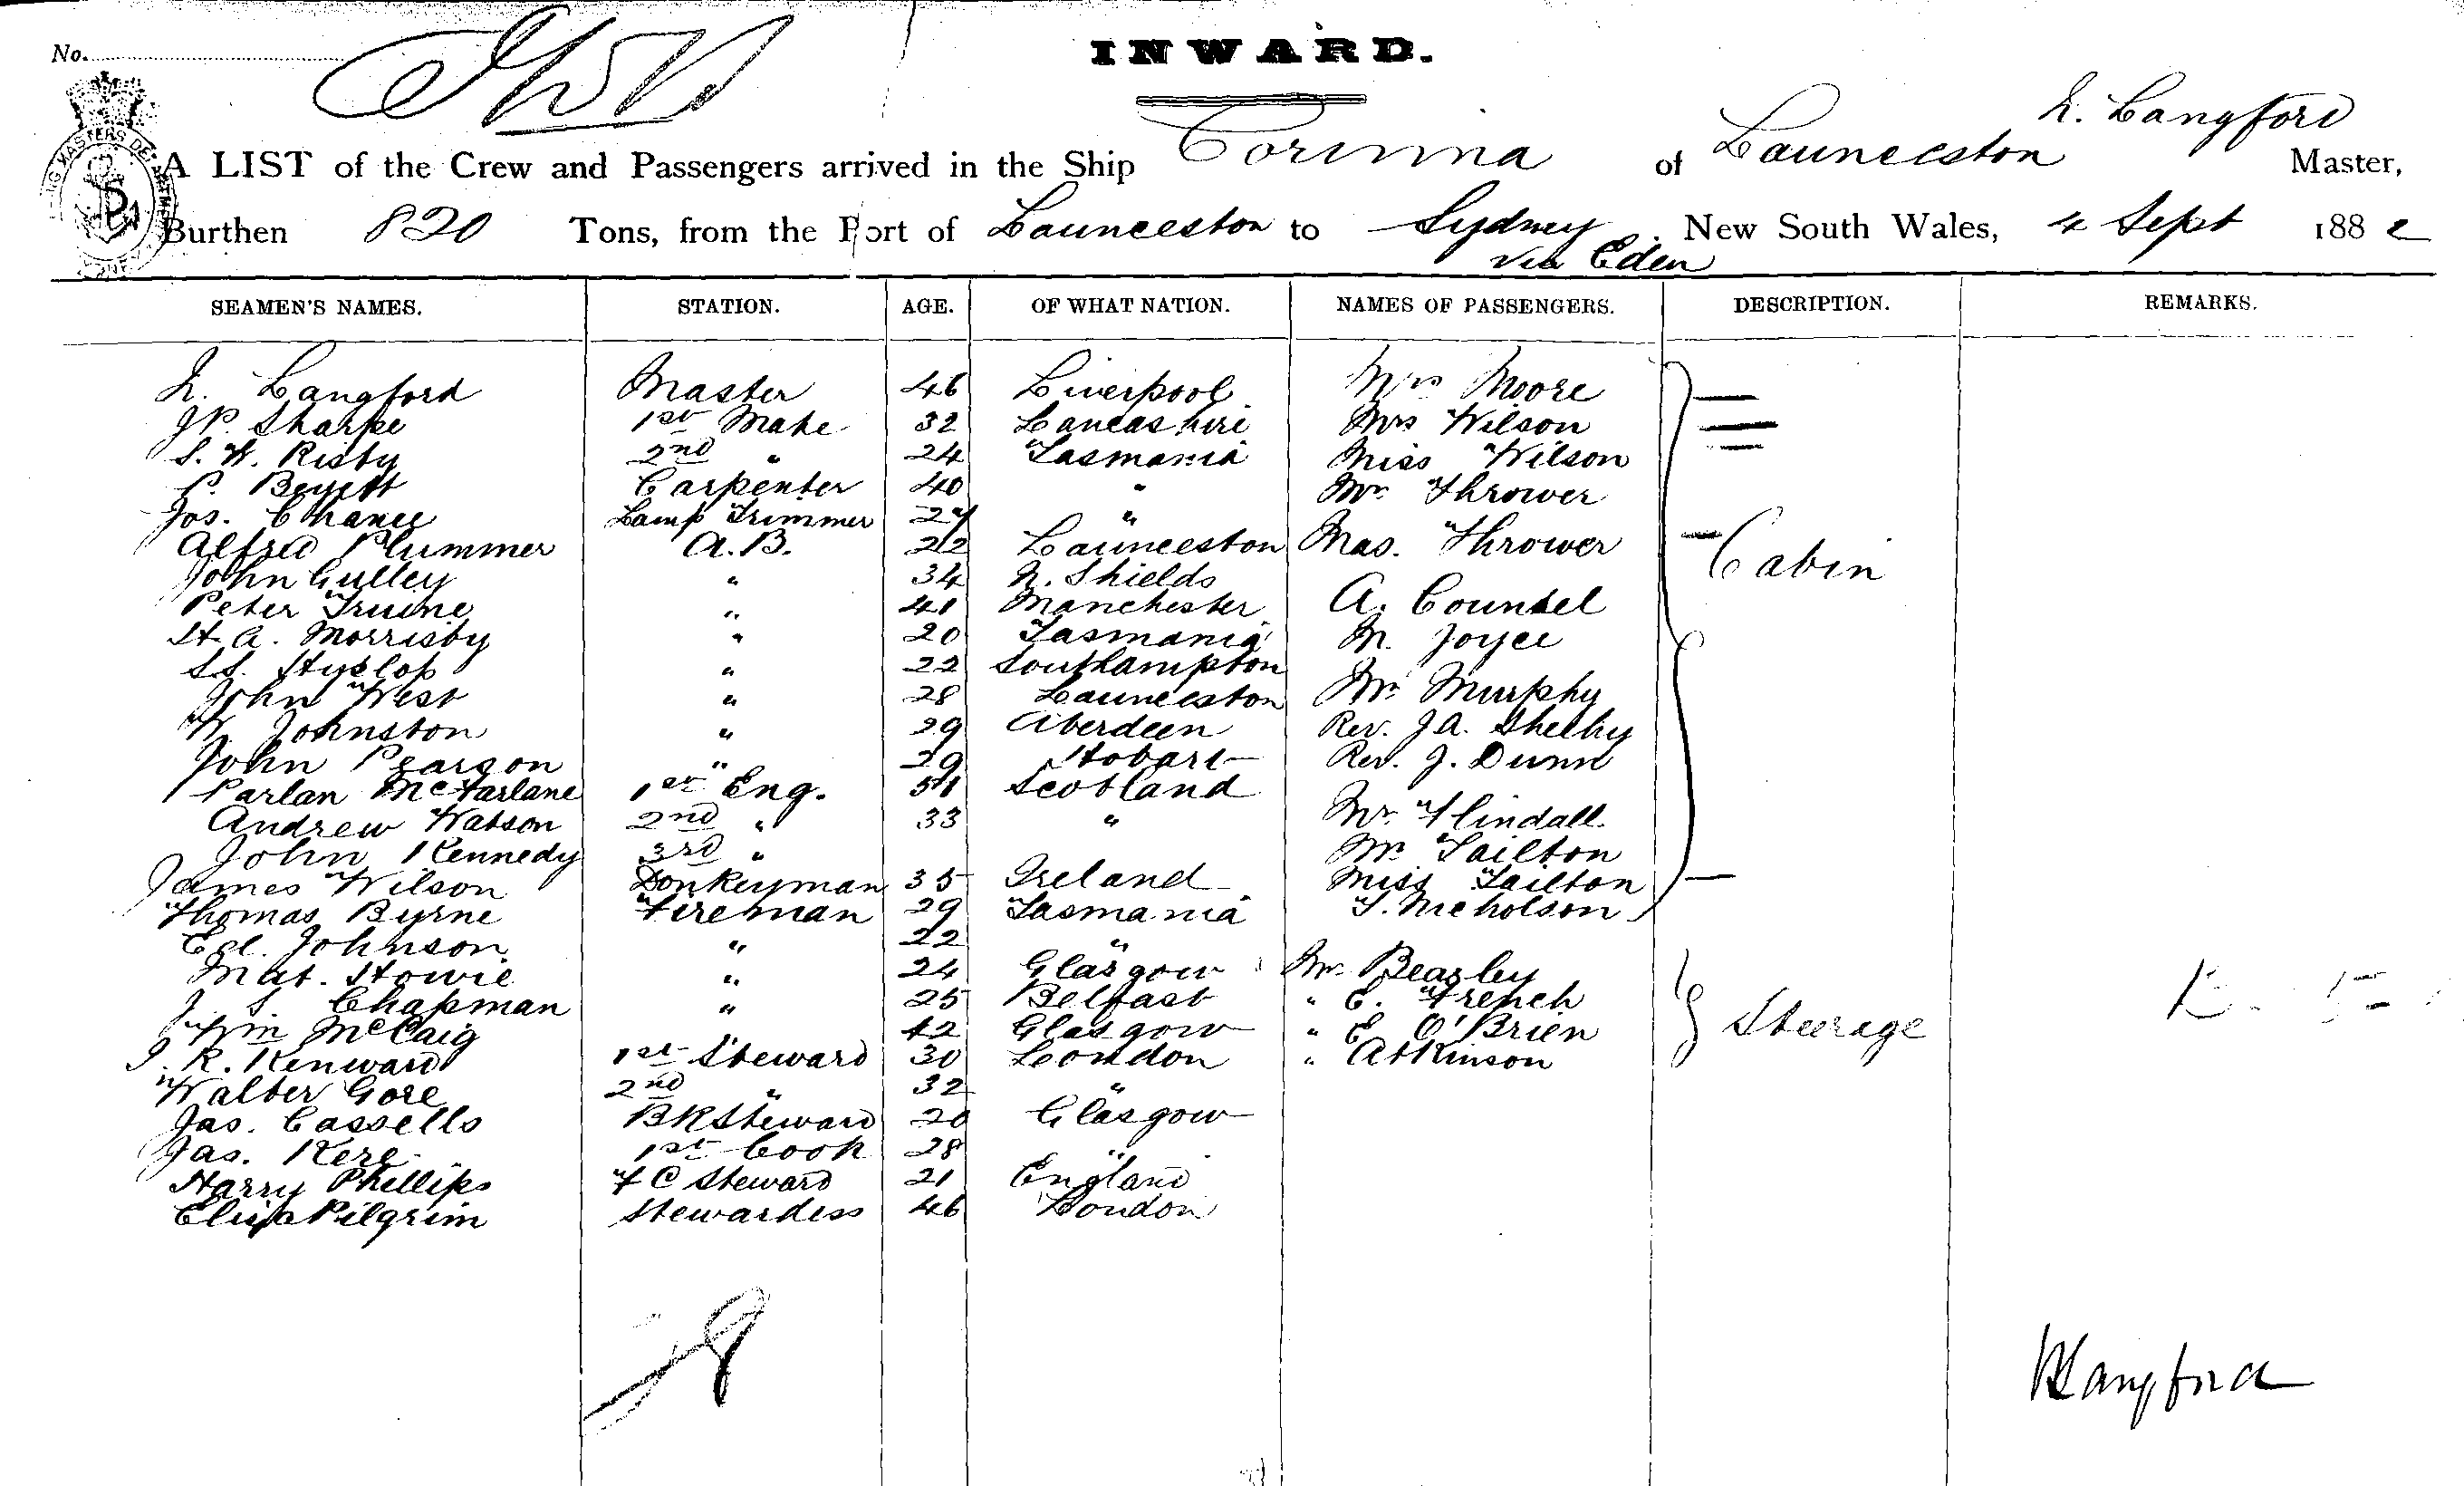 No.
INWARD.
L. Langford
A LIST of the Crew and Passengers arrived in the Ship Corinna of Launceston Master,
Burthen 820 Tons, from the Port of Launceston to Sydney New South Wales, 4 Sept 1882
via Eden
SEAMEN'S NAMES. STATION. AGE. OF WHAT NATION. NAMES OF PASSENGERS. DESCRIPTION. REMARKS.
L. Langford Master 46 Liverpool Mrs Moore
JP. Sharpe 1st Mate 32 Lancashire Mrs Wilson
S. W. Risby 2nd " 24 Tasmania Miss Wilson
Carpenter 40 " Mr Thrower
Jos. Chance Lamp Trimmer 24 "
Alfred Plummer A.B. 22 Launceston Mas. Thrower Cabin
John Gulley " 34 N. Shields
Peter " 41 Manchester A. Counsel
H. A. Morrisby " 20 Tasmania M. Joyce
Hyslop " 22 Southampton
John West " 28 Launceston Mr Murphy
W. Johnston " 29 Aberdeen Rev. JA.
John Pearson " 29 Hobart Rev. J. Dunn
Parlan McFarlane 1st Eng. 51 Scotland
Andrew Watson 2nd " 33 " Mr Flindall
John Kennedy 3rd " Mr Tailton
James Wilson Donkeyman 35 Ireland Miss Tailton
Thomas Byrne Fireman 29 Tasmania T. Nicholson
Johnson " 22 "
Mat. Howie " 24 Glasgow Mr Beasley
J. S. Chapman " 25 Belfast " E. French
Wm McCaig " 42 Glasgow " E O'Brien Steerage
R. Kenward 1st Steward 30 London " Atkinson
Walter Gore 2nd " 32 "
Jas. Cassells BK Steward 20 Glasgow
Jas. Kerr 1st Cook 28 "
Harry Phillips F C Steward 21 England
Eliza Pilgrim Stewardess 46 London
Langford